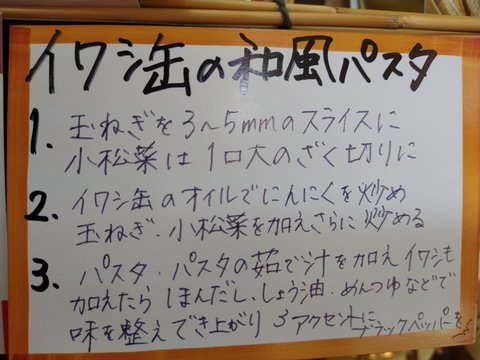 イワシ缶の和風パスタ
1. 玉ねぎを3〜5mmのスライスに
小松菜は1口大のざく切りに
2. イワシ缶のオイルでにんにくを炒め
玉ねぎ、小松菜を加えさらに炒める
3. パスタ・パスタの茹で汁を加えイワシも
加えたら ほんだし、しょう油、めんつゆなどで
味を整えでき上がり アクセントに
ブラックペッパーを